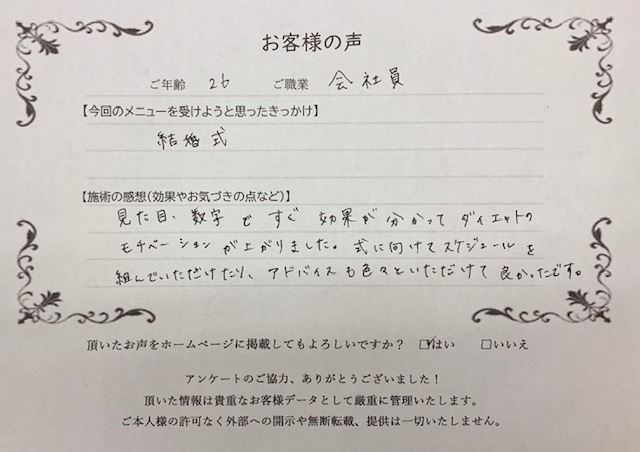 お客様の声
ご年齢 26 ご職業 会社員
【今回のメニューを受けようと思ったきっかけ】
結婚式
【施術の感想(効果やお気づきの点など)】
見た目、数字ですぐ効果が分かってダイエットの
モチベーションが上がりました。式に向けてスケジュールを
組んでいただけたり、アドバイスも色々といただけて良かったです。
頂いたお声をホームページに掲載してもよろしいですか? ☑はい □いいえ
アンケートのご協力、ありがとうございました!
頂いた情報は貴重なお客様データとして厳重に管理いたします。
ご本人様の許可なく外部への開示や無断転載、提供は一切いたしません。